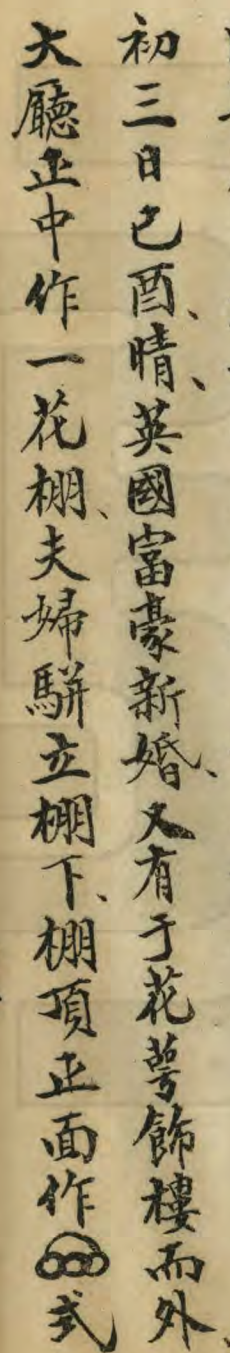 初三日己酉、晴、英國富豪新婚、又有于花萼飾樓而外、
大廳正中作一花棚、夫婦駢立棚下、棚頂正面作式